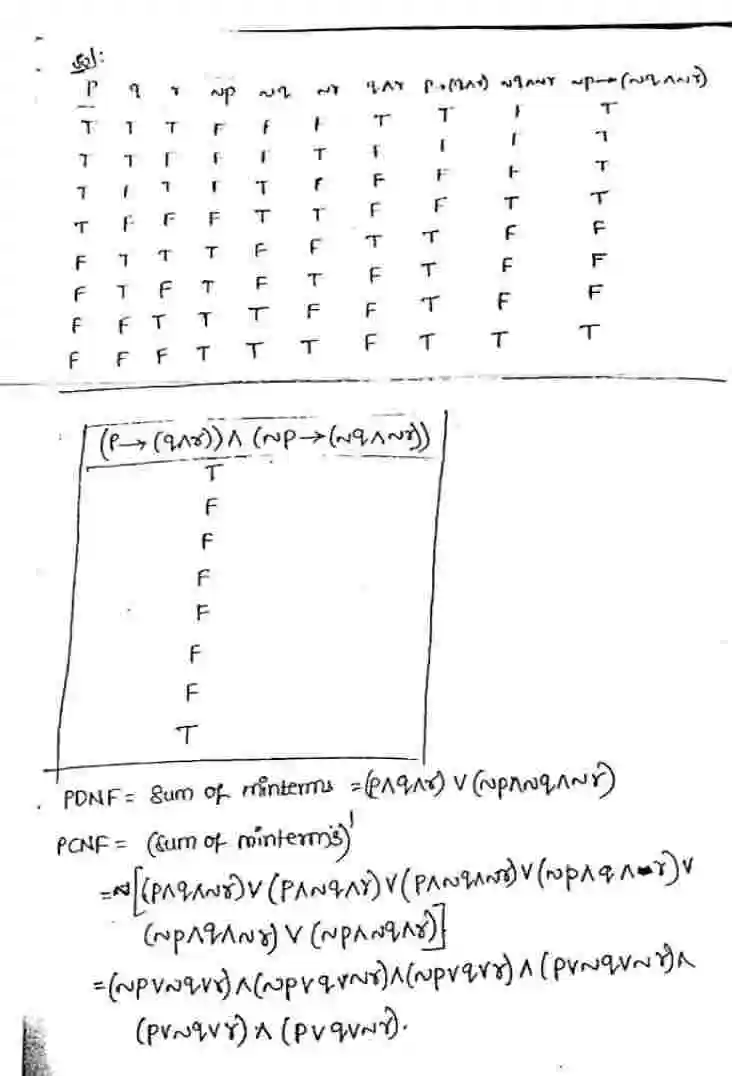 Sol:
P q r ~p ~q ~r q∧r P→(q∧r) ~q∧~r ~p→(~q∧~r)
T T T F F F T T F T
T T F F F T F F F T
T F T F T F F F F T
T F F F T T F F T T
F T T T F F T T F F
F T F T F T F T F F
F F T T T F F T F F
F F F T T T F T T T
(P→(q∧r))∧(~p→(~q∧~r))
T
F
F
F
F
F
F
T
PDNF = Sum of minterms = (p∧q∧r)∨(~p∧~q∧~r)
PCNF = (Sum of minterms)'
=~[(p∧q∧~r)∨(p∧~q∧r)∨(p∧~q∧~r)∨(~p∧q∧r)∨
(~p∧q∧~r)∨(~p∧~q∧r)]
=(~p∨~q∨r)∧(~p∨q∨~r)∧(~p∨q∨r)∧(p∨~q∨~r)∧
(p∨~q∨r)∧(p∨q∨~r).